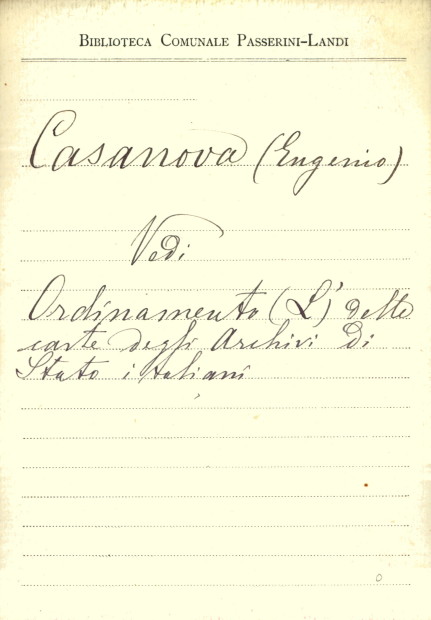 BIBLIOTECA COMUNALE PASSERINI-LANDI
Casanova (Eugenio)
Vedi
Ordinamento (L') delle
carte degli Archivi di
Stato italiani